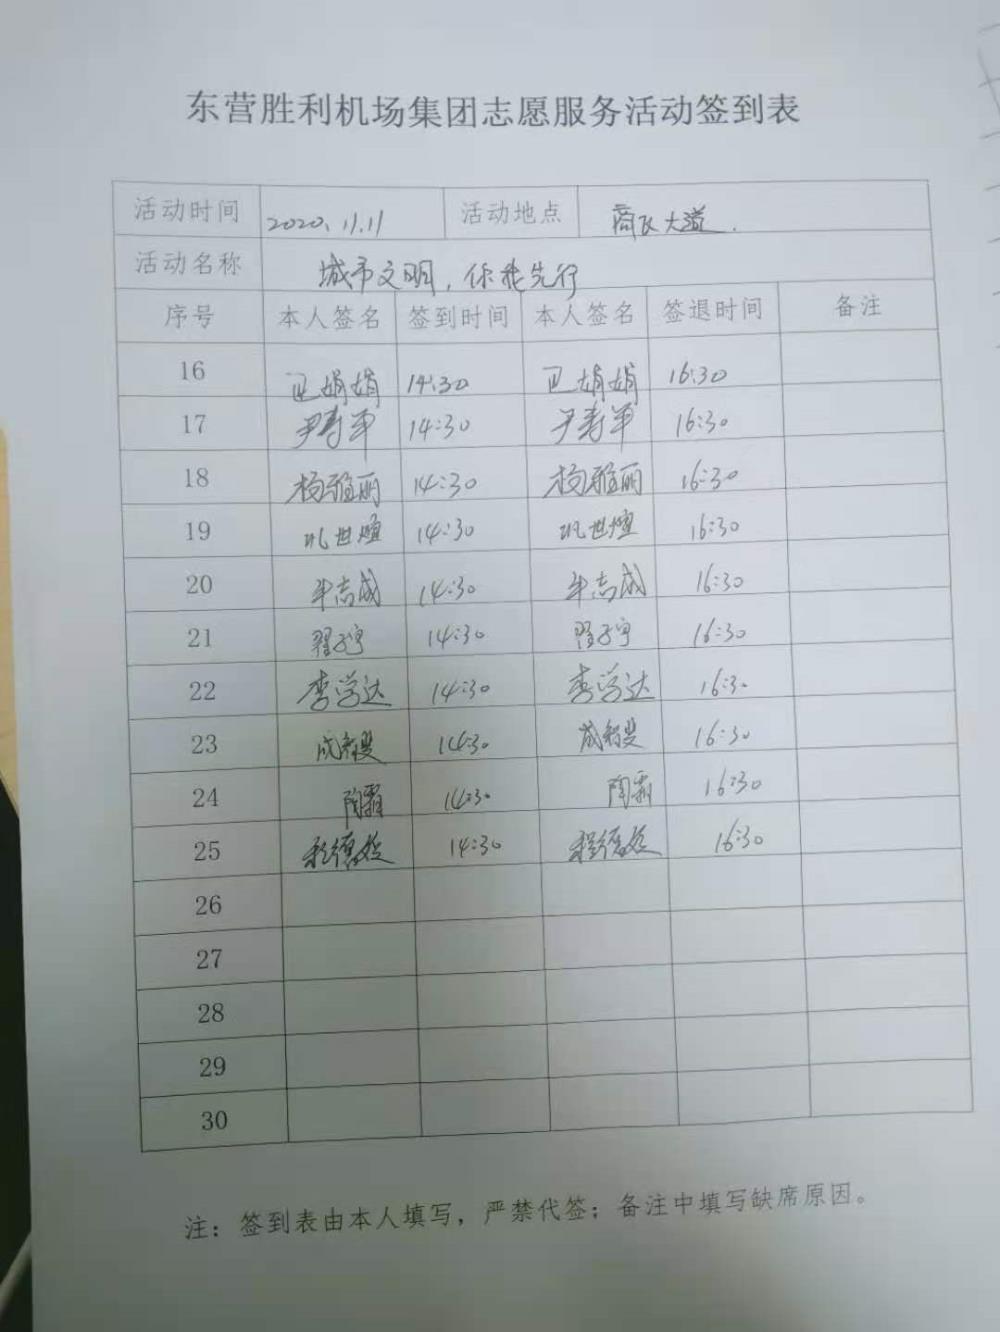 东营胜利机场集团志愿服务活动签到表
活动时间 2020.11.11 活动地点 商飞大道.
活动名称 城市文明，你我先行
序号 本人签名 签到时间 本人签名 签退时间 备注
16 娟娟 14:30 娟娟 16:30
17 尹寿军 14:30 尹寿军 16:30
18 杨雅丽 14:30 杨雅丽 16:30
19 巩世煊 14:30 巩世煊 16:30
20 牟志成 14:30 牟志成 16:30
21 翟子宇 14:30 翟子宇 16:30
22 李学达 14:30 李学达 16:30
23 成 14:30 成 16:30
24 陶霜 14:30 陶霜 16:30
25 程德 14:30 程德 16:30
26
27
28
29
30
注：签到表由本人填写，严禁代签；备注中填写缺席原因。